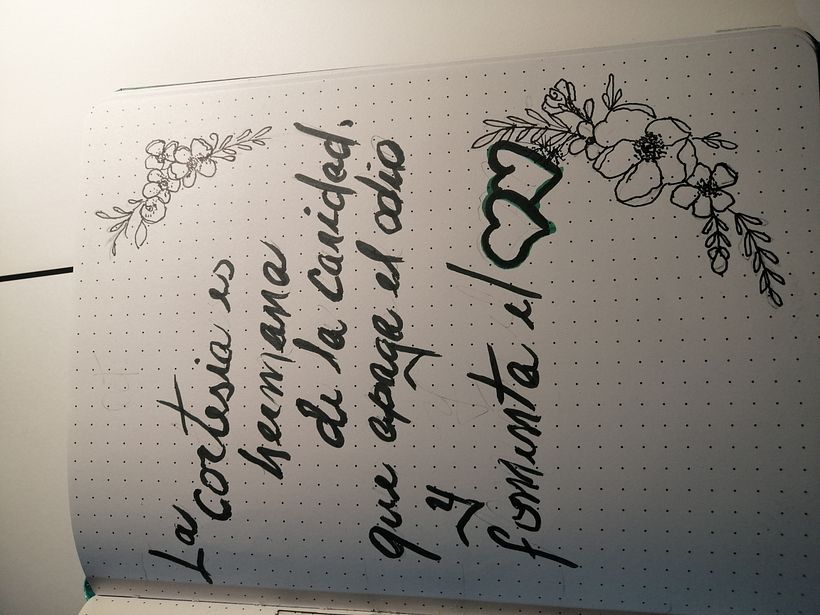 La
cortesia es
hermana
de la caridad,
que apaga el odio
y
fomenta el